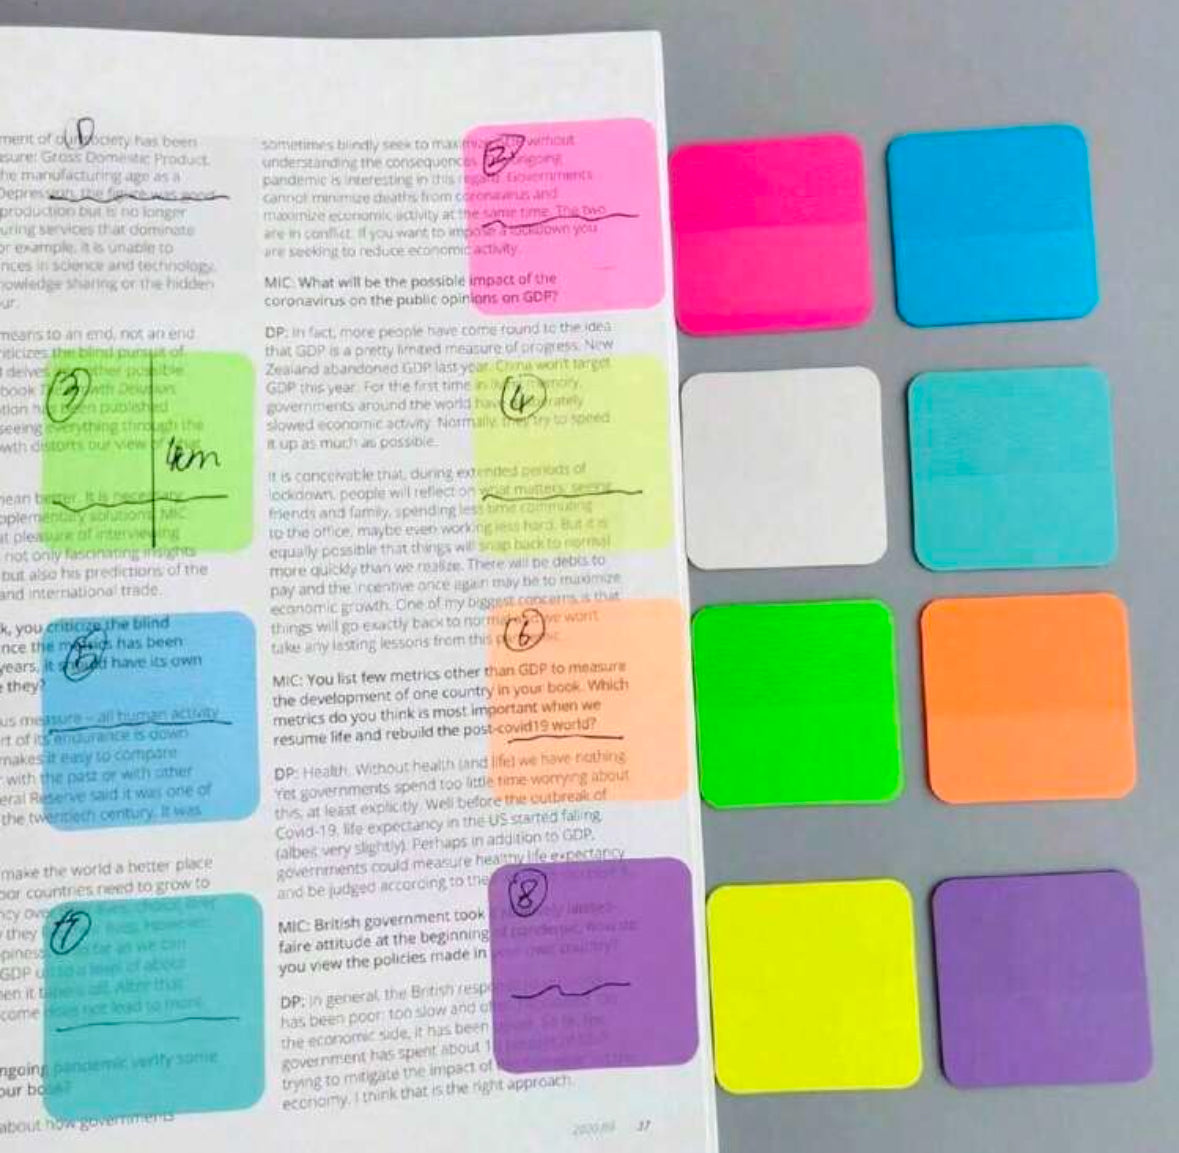 ment of our society has been
asure: Gross Domestic Product.
he manufacturing age as a
Depression, the figure was good
production but is no longer
uring services that dominate
or example, it is unable to
nces in science and technology,
nowledge sharing or the hidden
ur.
means to an end, not an end
riticizes the blind pursuit of
delves other possible
book
tion has been published
seeing everything through the
wth distorts our view of
ean better. It is necessary
pplementary solutions. MIC
at pleasure of interviewing
not only fascinating insights
but also his predictions of the
and international trade.
k, you criticize the blind
nce the metrics has been
years, it should have its own
they?
us measure – all human activity
rt of its endurance is down
makes it easy to compare
with the past or with other
eral Reserve said it was one of
the twentieth century. It was
make the world a better place
oor countries need to grow to
ncy over
they lives. However,
piness so far as we can
GDP up to a level of about
en it tapers off. After that
come does not lead to more
ngoing pandemic verify some
our book?
about how governments
sometimes blindly seek to maximize without
understanding the consequences. ongoing
pandemic is interesting in this regard. Governments
cannot minimize deaths from coronavirus and
maximize economic activity at the same time. The two
are in conflict. If you want to impose a lockdown you
are seeking to reduce economic activity.
MIC: What will be the possible impact of the
coronavirus on the public opinions on GDP?
DP: In fact, more people have come round to the idea
that GDP is a pretty limited measure of progress. New
Zealand abandoned GDP last year. China won't target
GDP this year. For the first time in memory,
governments around the world have deliberately
slowed economic activity. Normally, they try to speed
it up as much as possible.
It is conceivable that, during extended periods of
lockdown, people will reflect on what matters: seeing
friends and family, spending less time commuting
to the office, maybe even working less hard. But it is
equally possible that things will snap back to normal
more quickly than we realize. There will be debts to
pay and the incentive once again may be to maximize
economic growth. One of my biggest concerns is that
things will go exactly back to normal we won't
take any lasting lessons from this
MIC: You list few metrics other than GDP to measure
the development of one country in your book. Which
metrics do you think is most important when we
resume life and rebuild the post-covid19 world?
DP: Health. Without health (and life) we have nothing.
Yet governments spend too little time worrying about
this, at least explicitly. Well before the outbreak of
Covid-19, life expectancy in the US started falling
(albeit very slightly). Perhaps in addition to GDP,
governments could measure healthy life expectancy
and be judged according to
MIC: British government took laissez-
faire attitude at the beginning of pandemic, how do
you view the policies made in your own country?
DP: In general, the British response
has been poor: too slow and
the economic side, it has been So far, the
government has spent about
trying to mitigate the impact of
economy. I think that is the right approach.
2020.09 37
1
2
3
4cm
4
5
6
7
8